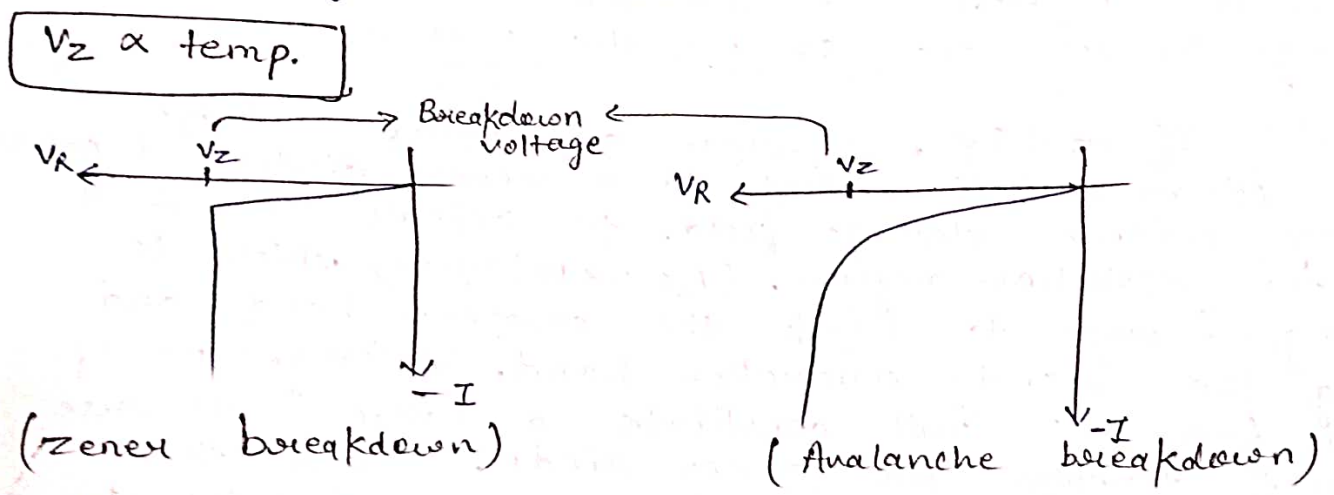 Vz ∝ temp.
Breakdown
voltage
VR
Vz
VR
Vz
- I
-I
(zener breakdown)
(Avalanche breakdown)